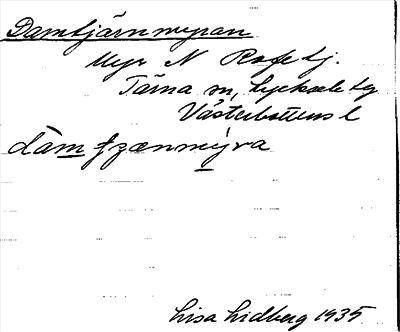 Damtjärnmyran
Myr N Rosetj.
Tärna sn, Lycksele tg
Västerbottens l
dämtjzænmyra
Lisa Lidberg 1935